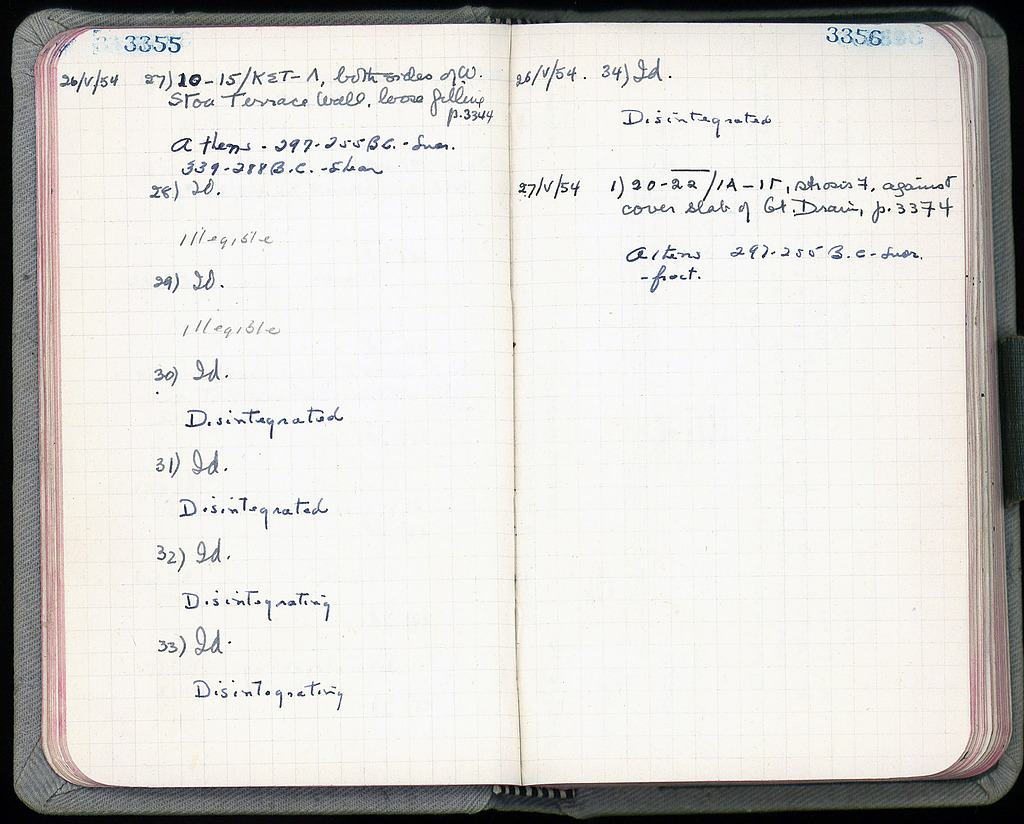 3355
26/V/54 27) 10-15/ΚΣΤ-Λ, both sides of W.
Stoa Terrace Wall, loose filling
p.3344
Athens - 297-255 B.C. - Svor.
339-288 B.C. - Shear
28) Id.
Illegible
29) Id.
Illegible
30) Id.
Disintegrated
31) Id.
Disintegrated
32) Id.
Disintegrating
33) Id.
Disintegrating
3356
26/V/54. 34) Id.
Disintegrated
27/V/54 1) 20-22/ΙΑ-ΙΓ, strosis 7, against
cover slab of Gt. Drain, p.3374
Athens 297-255 B.C. - Svor.
- fract.